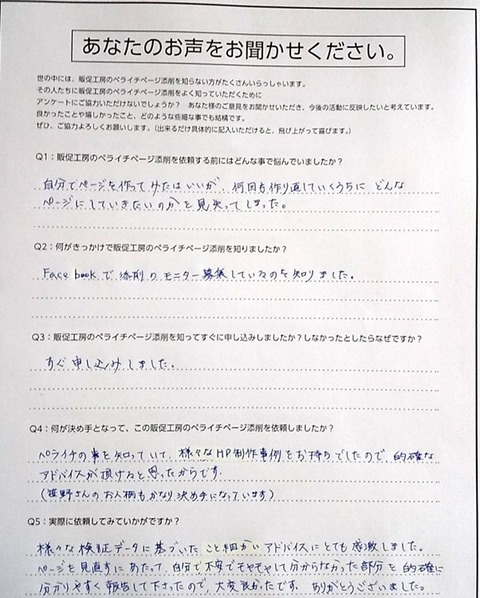 あなたのお声をお聞かせください。
世の中には、販促工房のペライチページ添削を知らない方がたくさんいらっしゃいます。
その人たちに販促工房のペライチページ添削をよく知っていただくために
アンケートにご協力いただけないでしょうか？ あなた様のご意見をお聞かせいただき、今後の活動に反映したいと考えています。
良かったことや嬉しかったこと、どのような些細な事でも結構です。
ぜひ、ご協力よろしくお願いします。（出来るだけ具体的に記入いただけると、飛び上がって喜びます。）
Q1：販促工房のペライチページ添削を依頼する前にはどんな事で悩んでいましたか？
自分でページを作ってみたはいいが、何回も作り直していくうちに どんな
ページにしていきたいのかを見失ってしまった。
Q2：何がきっかけで販促工房のペライチページ添削を知りましたか？
Facebookで添削のモニター募集しているのを知りました。
Q3：販促工房のペライチページ添削を知ってすぐに申し込みしましたか？しなかったとしたらなぜですか？
すぐ申し込みしました。
Q4：何が決め手となって、この販促工房のペライチページ添削を依頼しましたか？
ペライチの事を知っていて、様々なHP制作事例をお持ちでしたので、的確な
アドバイスが頂けると思ったからです。
（笹野さんのお人柄もかなり決め手になっています）
Q5：実際に依頼してみていかがですか？
様々な検証データに基づいた こと細かいアドバイスにとても感激しました。
ページを見直すにあたって、自分で不安でモヤモヤして分からなかった部分を的確に
分かりやすく報告して下さったので、大変良かったです。ありがとうございました。